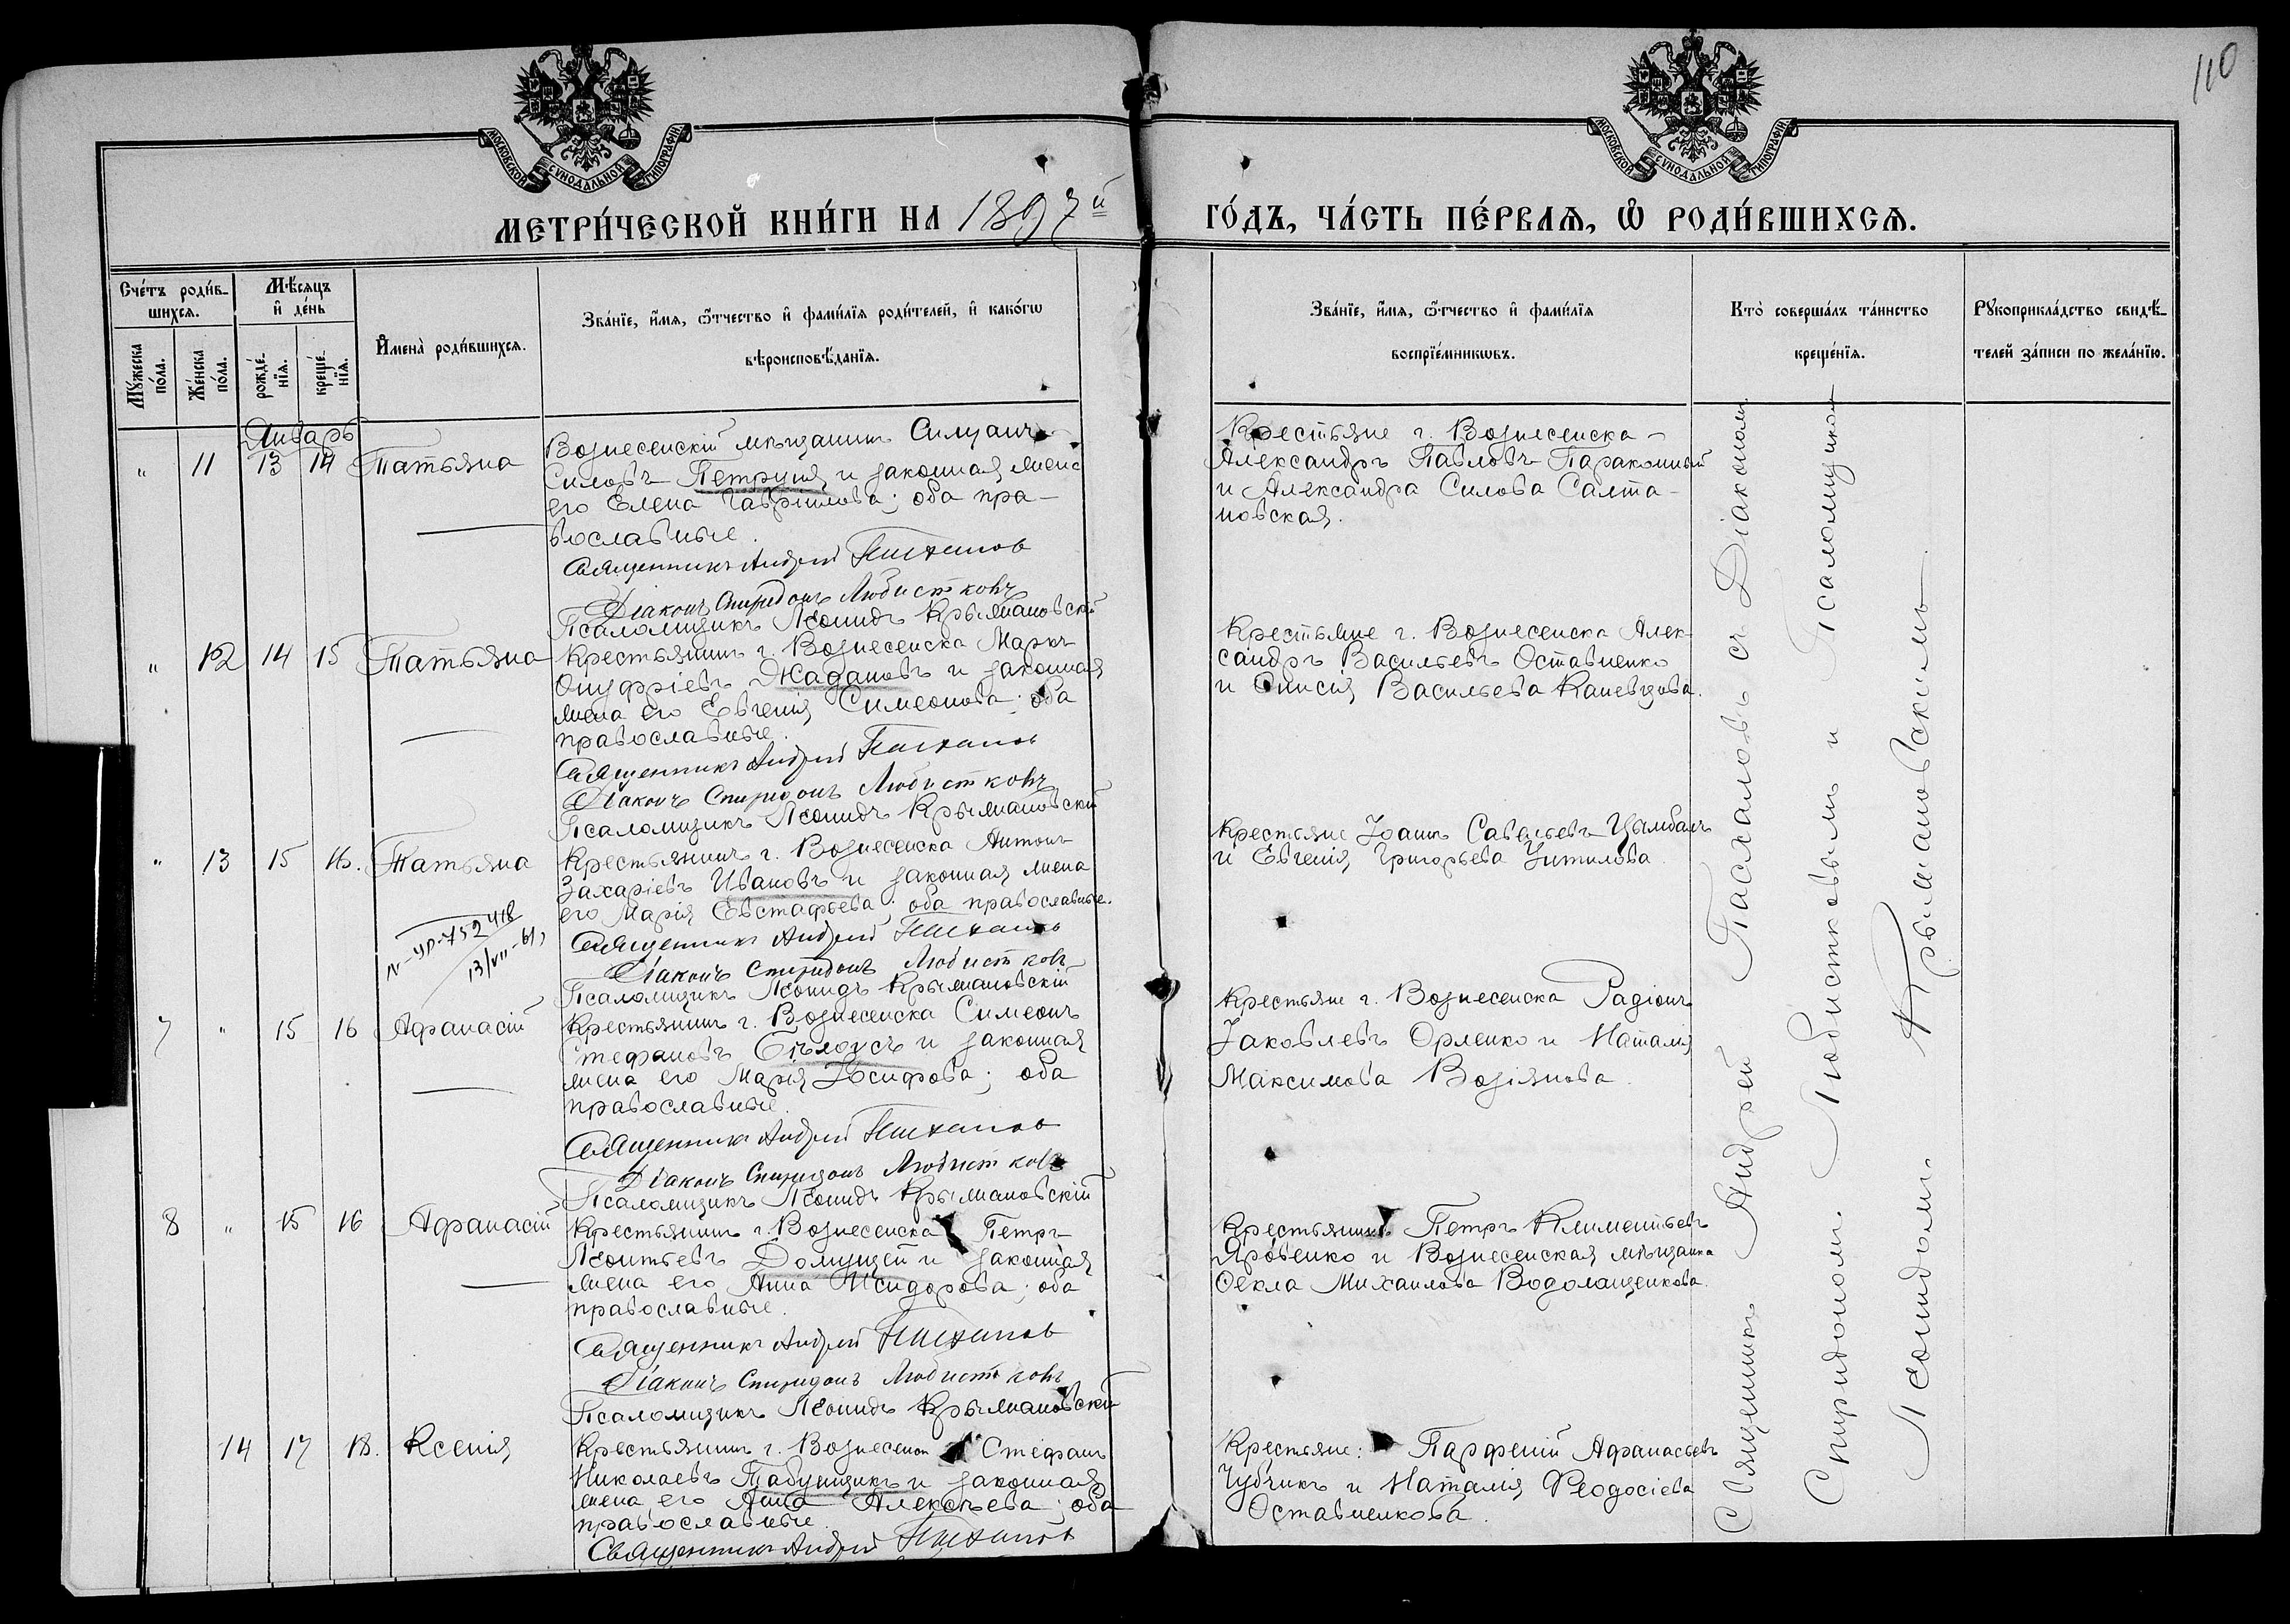 110
МОСКОВСКОЙ СѴНОДАЛЬНОЙ ТИПОГРАФІИ
МОСКОВСКОЙ СѴНОДАЛЬНОЙ ТИПОГРАФІИ
МЕТРИ́ЧЕСКОЙ КНИ́ГИ НА 1897й
ГО́ДЪ, ЧА́СТЬ ПЕ́РВАѦ, Ѡ҆ РОДИ́ВШИХСѦ.
Сче́тъ роди́в-
шихсѧ.
Мꙋ́жеска
по́ла.
Же́нска
по́ла.
Мѣ́сѧцъ
и҆ де́нь
рожде́-
нїѧ.
креще́-
нїѧ.
И҆мена̀ роди́вшихсѧ.
Зва́нїе, и҆́мѧ, ѻ҆́тчество и҆ фами́лїѧ роди́телей, и҆ како́гѡ
вѣроисповѣ́данїѧ.
Зва́нїе, и҆́мѧ, ѻ҆́тчество и҆ фами́лїѧ
воспрїе́мникѡвъ.
Кто̀ соверша́лъ та́инство
креще́нїѧ.
Рꙋкоприкла́дство свидѣ́-
телей за́писи по жела́нїю.
Январь
" 11 13 14 Татьяна
Вознесенскій мѣщанинъ Силуанъ
Силовъ Петруня и законная жена
его Елена Гавріилова; оба пра-
вославные.
Священникъ Андрей Пасхалов
Діаконъ Спиридонъ Любистковъ
Псаломщикъ Леонидъ Крыжановскій
Крестьяне г. Вознесенска -
Александръ Павловъ Параконный
и Александра Силова Салта-
новская.
" 12 14 15 Татьяна
Крестьянинъ г. Вознесенска Маркъ
Онуфріевъ Жадановъ и законная
жена его Евгенія Симеонова; оба
православные.
Священникъ Андрей Пасхалов
Діаконъ Спиридонъ Любистковъ
Псаломщикъ Леонидъ Крыжановскій
Крестьяне г. Вознесенска Алек-
сандръ Васильевъ Оставненко
и Онисія Васильева Каневцова.
" 13 15 16. Татьяна
Крестьянинъ г. Вознесенска Антонъ
Захаріевъ Ивановъ и законная жена
его Марія Евстафьева; оба православные.
Священникъ Андрей Пасхалов
Діаконъ Спиридонъ Любистковъ
Псаломщикъ Леонидъ Крыжановскій
Крестьяне Іоаннъ Савельевъ Цымбалъ
и Евгенія Григорьева
13/VII-61
7 " 15 16 Афанасій
Крестьянинъ г. Вознесенска Симеонъ
Стефановъ Бѣлоусъ и законная
жена его Марія Іосифова; оба
православные.
Священникъ Андрей Пасхалов
Діаконъ Спиридонъ Любистковъ
Псаломщикъ Леонидъ Крыжановскій
Крестьяне г. Вознесенска Радіонъ
Іаковлевъ Орленко и Наталія
Максимова Возіянова.
8 " 15 16 Афанасій
Крестьянинъ г. Вознесенска Петръ
Леонтьевъ Долинцей и законная
жена его Анна Исидорова; оба
православные.
Священникъ Андрей Пасхалов
Діаконъ Спиридонъ Любистковъ
Псаломщикъ Леонидъ Крыжановскій
Крестьянинъ Петръ Климентьевъ
Яровенко и Вознесенская мѣщанка
Ѳекла Михаилова Водолащенкова.
14 17 18. Ксенія
Крестьянинъ г. Вознесенск Стефанъ
Николаевъ Табунщикъ и законная
жена его Анна Алексѣева; оба
православные.
Священникъ Андрей Пасхалов
Крестьяне: Парфеній Афанасьевъ
Чубчикъ и Наталія Ѳеодосіева
Оставненкова.
Священникъ Андрей Пасхаловъ съ Діакономъ
Спиридономъ Любистковымъ и Псаломщикомъ
Леонидомъ Крыжановскимъ